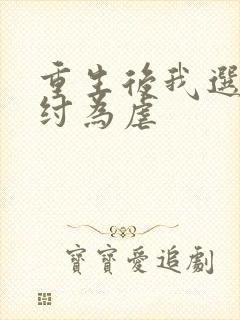 重生後我選
紂為虐
寶寶愛追劇